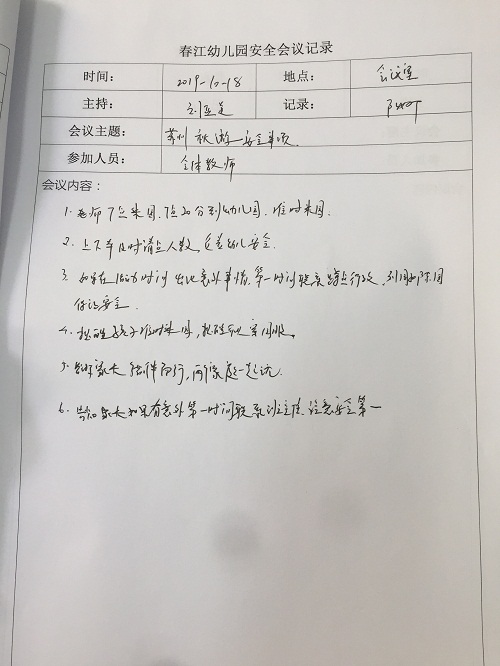 春江幼儿园安全会议记录
时间： 2019-10-18 地点： 会议室
主持： 记录：
会议主题： 苏州秋游安全事项
参加人员： 全体教师
会议内容：
1. 老师7点来园，7点20分到幼儿园，准时来园。
2. 上下车及时清点人数，注意幼儿安全。
3. 如果在活动时间出现意外事情，第一时间联系
保证安全。
4. 提醒孩子准时来园，提醒
5. 告知家长结伴而行，两个家庭一起玩。
6. 告知家长如果有意外第一时间联系班主任，注意安全第一